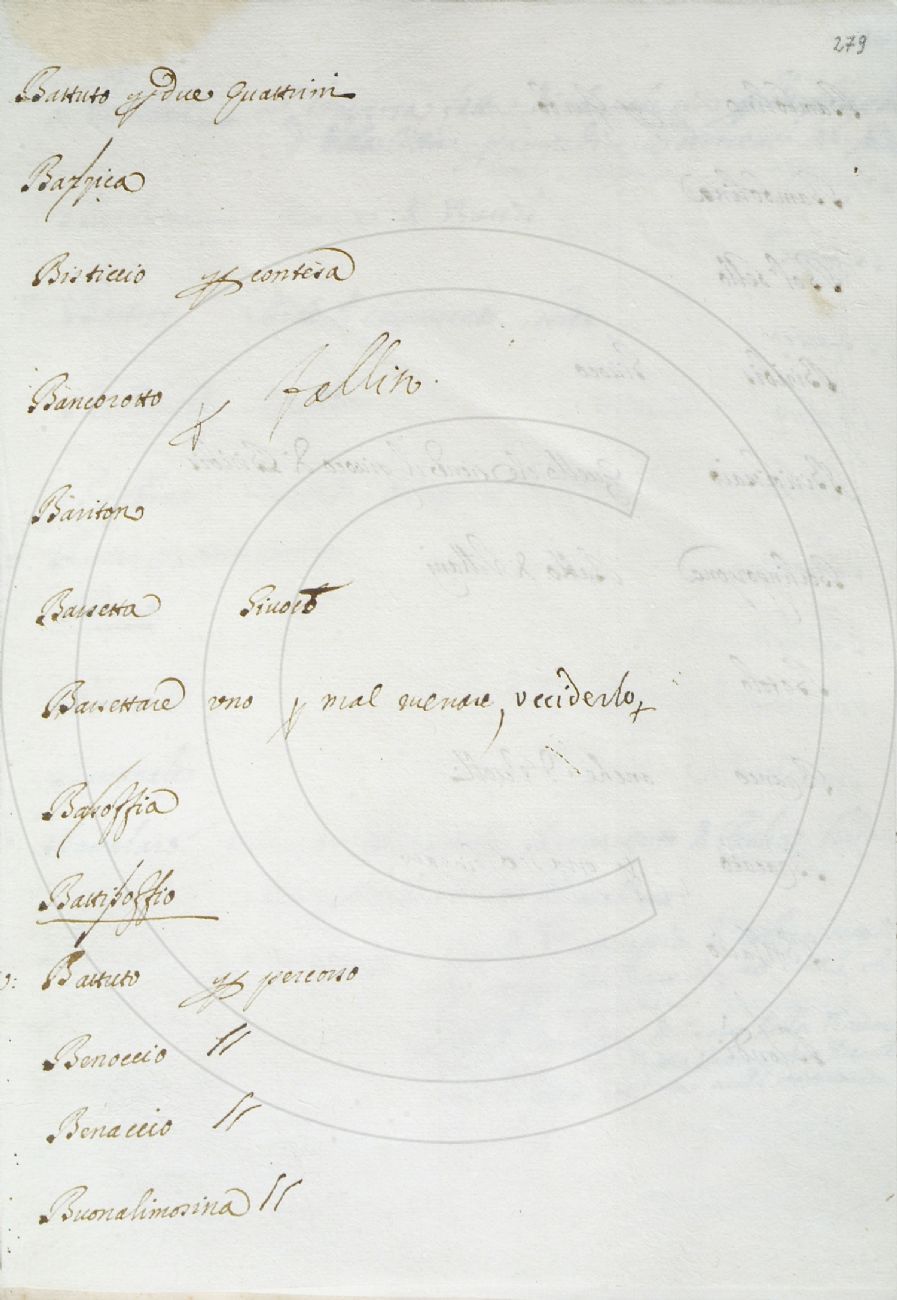 279
Battuto p due quattrini
Bazzica
Bisticcio p contesa
Bancorotto p fallito.
Bariton
Bassetta Giuoco
Bassettare uno p mal menare, ucciderlo
Basoffia
Battisoffio
Battuto p percosso
Benoccio //
Benaccio //
Buonalimosina //